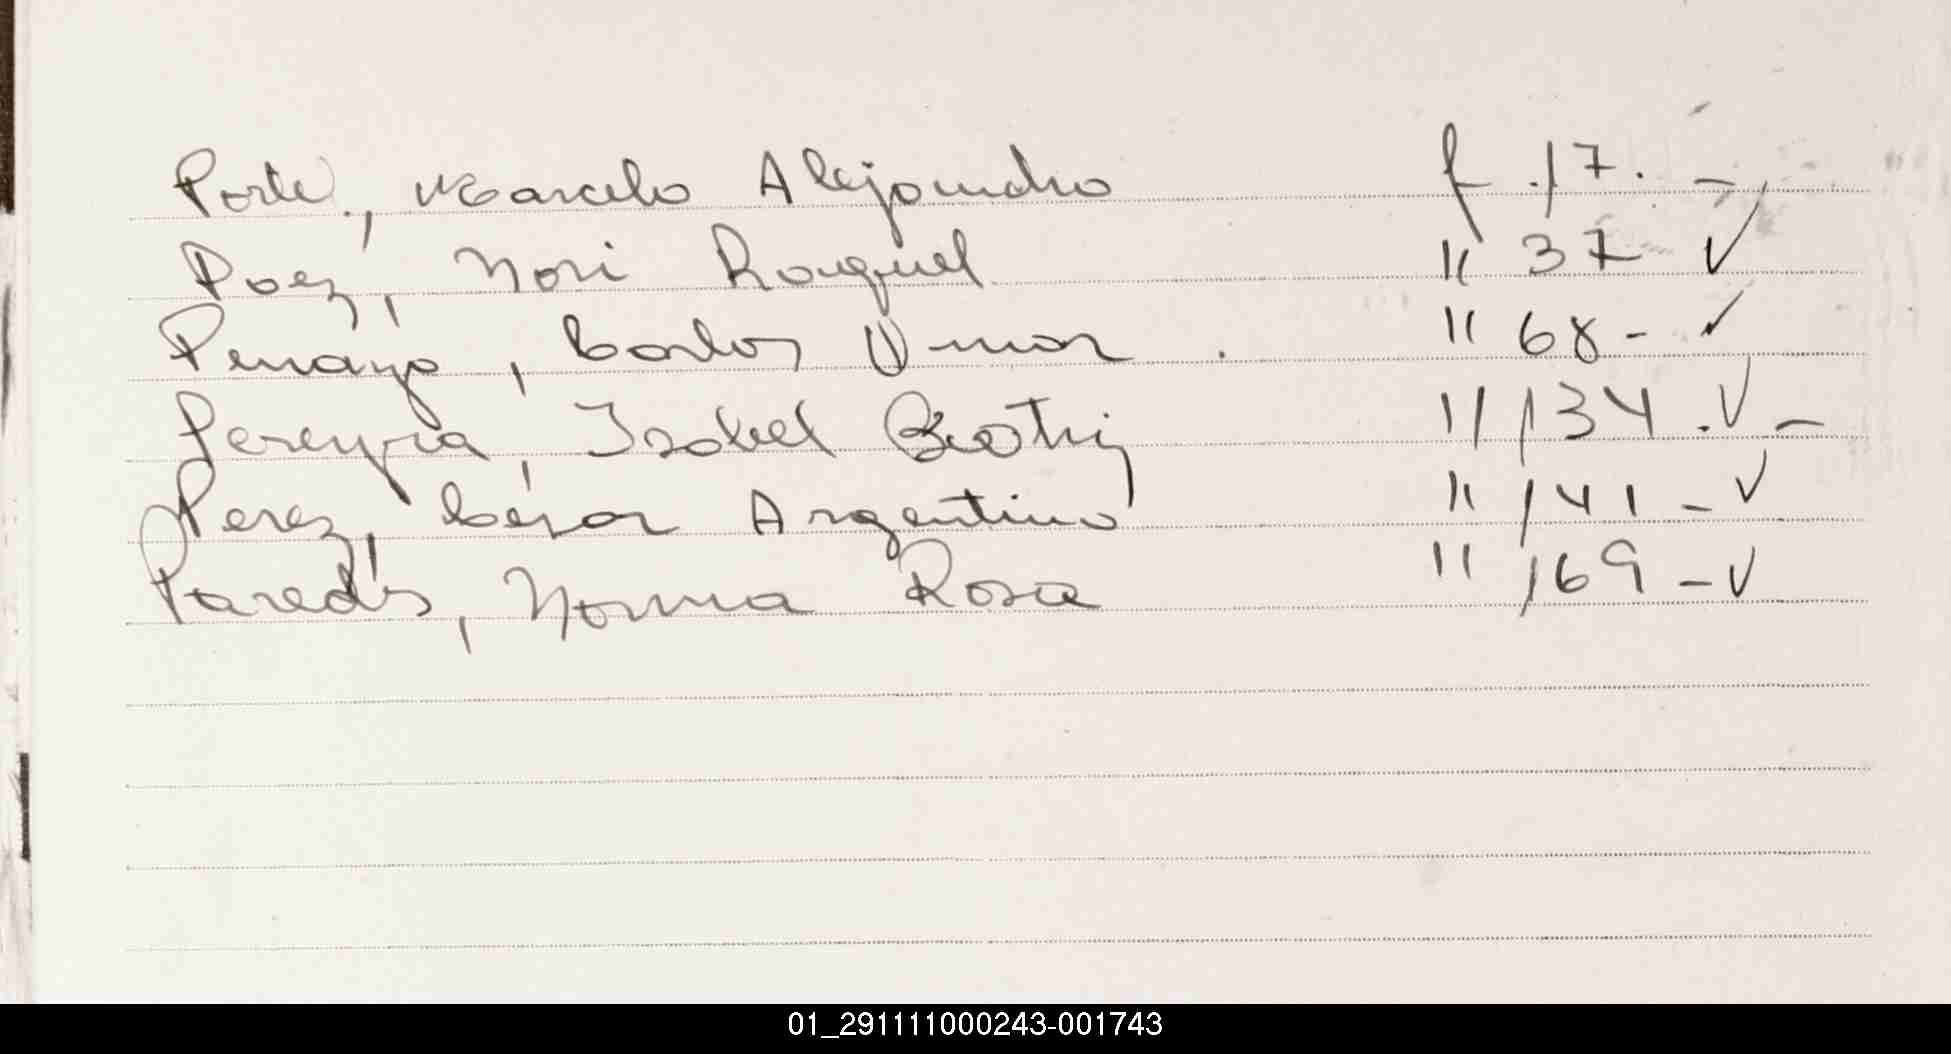 Porte., Marcelo Alejandro f. 17. -
Paez, Nori Raquel " 37 ✓
Penayo, Carlos Omar . " 68 - ✓
Pereyra, Isabel Beatriz " 134 . ✓ -
Perez, César Argentino " 141 - ✓
Paredes, Norma Rosa " 169 - ✓
01_291111000243-001743